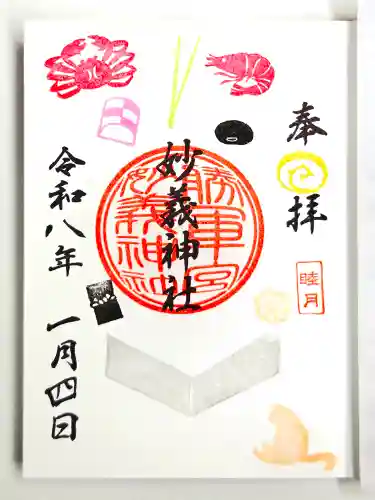 奉拝
睦月
妙義神社
令和八年 一月四日